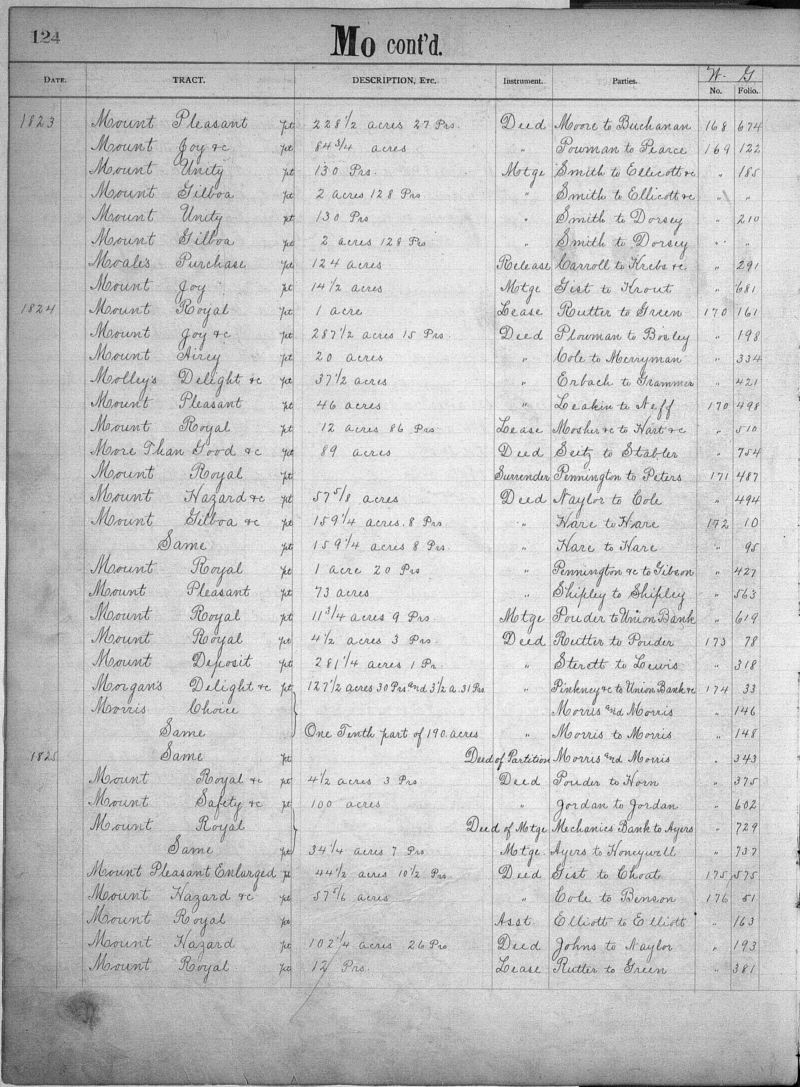 124 Mo cont'd.
W. G
DATE. TRACT. DESCRIPTION, ETC. Instrument. Parties. No. Folio.
1823 Mount Pleasant pt 228 1/2 acres 27 Prs. Deed Moore to Buchanan 168 674
Mount Joy &c pt 84 3/4 acres " Powman to Pearce 169 122
Mount Unity pt 130 Prs. Motge Smith to Ellicott &c " 185
Mount Gilboa pt 2 acres 128 Prs " Smith to Ellicott &c " "
Mount Unity pt 130 Prs " Smith to Dorsey " 210
Mount Gilboa pt 2 acres 128 Prs " Smith to Dorsey " "
Moale's Purchase pt 124 acres Release Carroll to Krebs &c " 291
Mount Joy pt 14 1/2 acres Mtge Gist to Krout " 681
1824 Mount Royal pt 1 acre Lease Rutter to Green 170 161
Mount Joy &c pt 287 1/2 acres 15 Prs. Deed Plowman to Bosley " 198
Mount Airey pt 20 acres " Cole to Merryman " 334
Molley's Delight &c pt 37 1/2 acres " Erbach to Grammer " 421
Mount Pleasant pt 46 acres " Leakin to Neff 170 498
Mount Royal pt 12 acres 86 Prs Lease Mosher &c to Hart &c " 510
More Than Good &c pt 89 acres Deed Seitz to Stabler " 754
Mount Royal pt Surrender Pennington to Peters 171 487
Mount Hazard &c pt 57 5/8 acres Deed Naylor to Cole " 494
Mount Gilboa &c pt 159 1/4 acres 8 Prs. " Hare to Hare 172 10
Same pt 159 1/4 acres 8 Prs. " Hare to Hare " 95
Mount Royal pt 1 acre 20 Prs " Pennington &c to Gibson " 427
Mount Pleasant pt 73 acres " Shipley to Shipley " 563
Mount Royal pt 11 3/4 acres 9 Prs. Mtge Pouder to Union Bank " 619
Mount Royal pt 4 1/2 acres 3 Prs. Deed Rutter to Pouder 173 78
Mount Deposit pt 281 1/4 acres 1 Pr. " Sterett to Lewis " 318
Morgan's Delight &c pt 127 1/2 acres 30 Prs and 3 1/2 a. 31 Prs " Pinkney &c to Union Bank &c 174 33
Morris Choice Morris and Morris " 146
Same One Tenth part of 190 acres " Morris to Morris " 148
1825 Same pt Deed of Partition Morris and Morris " 343
Mount Royal &c pt 4 1/2 acres 3 Prs Deed Pouder to Horn " 375
Mount Safety &c pt 100 acres " Jordan to Jordan " 602
Mount Royal Deed of Mtge Mechanics Bank to Ayers " 729
Same pt 34 1/4 acres 7 Prs Mtge. Ayers to Honeywell " 737
Mount Pleasant Enlarged pt 44 1/2 acres 10 1/2 Prs. Deed Gist to Choat 175 575
Mount Hazard &c pt 57 5/6 acres " Cole to Benson 176 51
Mount Royal pt Asst. Elliott to Elliott " 163
Mount Hazard pt 102 1/4 acres 26 Prs Deed Johns to Naylor " 193
Mount Royal pt 12 Prs. Lease Rutter to Green " 381